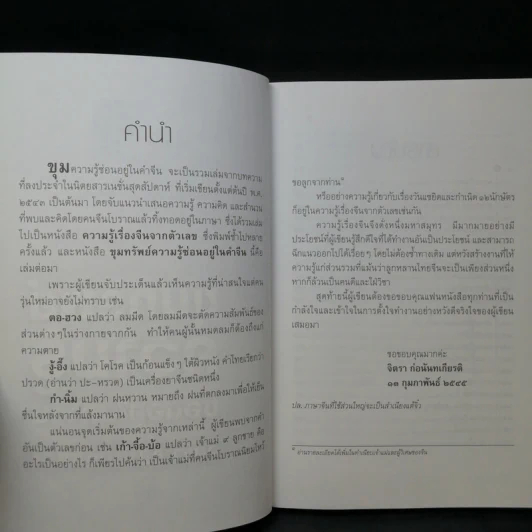 คำนำ
ขุมความรู้ซ่อนอยู่ในคำจีน จะเป็นรวมเล่มจากบทความ
ที่ลงประจำในนิตยสารเนชั่นสุดสัปดาห์ ที่เริ่มเขียนตั้งแต่ต้นปี พ.ศ.
๒๕๔๓ เป็นต้นมา โดยจับแนวนำเสนอความรู้ ความคิด และสำนวน
ที่พบและคิดโดยคนจีนโบราณแล้วทิ้งทอดอยู่ในภาษา ซึ่งได้รวมเล่ม
ไปเป็นหนังสือ ความรู้เรื่องจีนจากตัวเลข ซึ่งพิมพ์ซ้ำไปหลาย
ครั้งแล้ว และหนังสือ ขุมทรัพย์ความรู้ซ่อนอยู่ในคำจีน นี้คือ
เล่มต่อมา
เพราะผู้เขียนจับประเด็นแล้วเห็นความรู้ที่น่าสนใจแต่คน
รุ่นใหม่อาจยังไม่ทราบ เช่น
ตอ-ฮวง แปลว่า ลมมีด โดยลมมีดจะตัดความสัมพันธ์ของ
ส่วนต่างๆ ในร่างกายจากกัน ทำให้คนผู้นั้นหมดลมก็ต้องถึงแก่
ความตาย
งู้-อึ๊ง แปลว่า โคโรค เป็นก้อนแข็งๆ ใต้ผิวหนัง คำไทยเรียกว่า
ปรวด (อ่านว่า ปะ-หรวด) เป็นเครื่องยาจีนชนิดหนึ่ง
กำ-นิ้ม แปลว่า ฝนหวาน หมายถึง ฝนที่ตกลงมาเพื่อให้เย็น
ชื่นใจหลังจากที่แล้งมานาน
แน่นอนจุดเริ่มต้นของความรู้จากเหล่านี้ ผู้เขียนพบจากคำ
อันเป็นตัวเลขก่อน เช่น เก้า-จื้อ-บ้อ แปลว่า เจ้าแม่ ๙ ลูกชาย คือ
อะไรเป็นอย่างไร ก็เพียรไปค้นว่า เป็นเจ้าแม่ที่คนจีนโบราณนิยมไหว้
ขอลูกจากท่าน*
หรืออย่างความรู้เกี่ยวกับเรื่องวันแซยิดและกำเนิด ๑๒นักษัตร
ก็อยู่ในความรู้เรื่องจีนจากตัวเลขเช่นกัน
ความรู้เรื่องจีนจึงดั่งหนึ่งมหาสมุทร มีมากมายอย่างมี
ประโยชน์ที่ผู้เขียนรู้สึกดีใจที่ได้ทำงานอันเป็นประโยชน์ และสามารถ
ฉีกแนวออกไปได้เรื่อยๆ โดยไม่ต้องซ้ำทางเดิม แต่หวังสร้างงานที่ให้
ความรู้แก่ส่วนรวมที่แม้นว่าลูกหลานไทยจีนจะเป็นเพียงส่วนหนึ่ง
หากก็ล้วนเป็นคนดีและใฝ่วิชา
สุดท้ายนี้ผู้เขียนต้องขอขอบคุณแฟนหนังสือทุกท่านที่เป็น
กำลังใจและเข้าใจในการตั้งใจทำงานอย่างหวังดีจริงใจของผู้เขียน
เสมอมา
ขอขอบคุณมากค่ะ
จิตรา ก่อนันทเกียรติ
๑๑ กุมภาพันธ์ ๒๕๔๕
ปล. ภาษาจีนที่ใช้ส่วนใหญ่จะเป็นสำเนียงแต้จิ๋ว